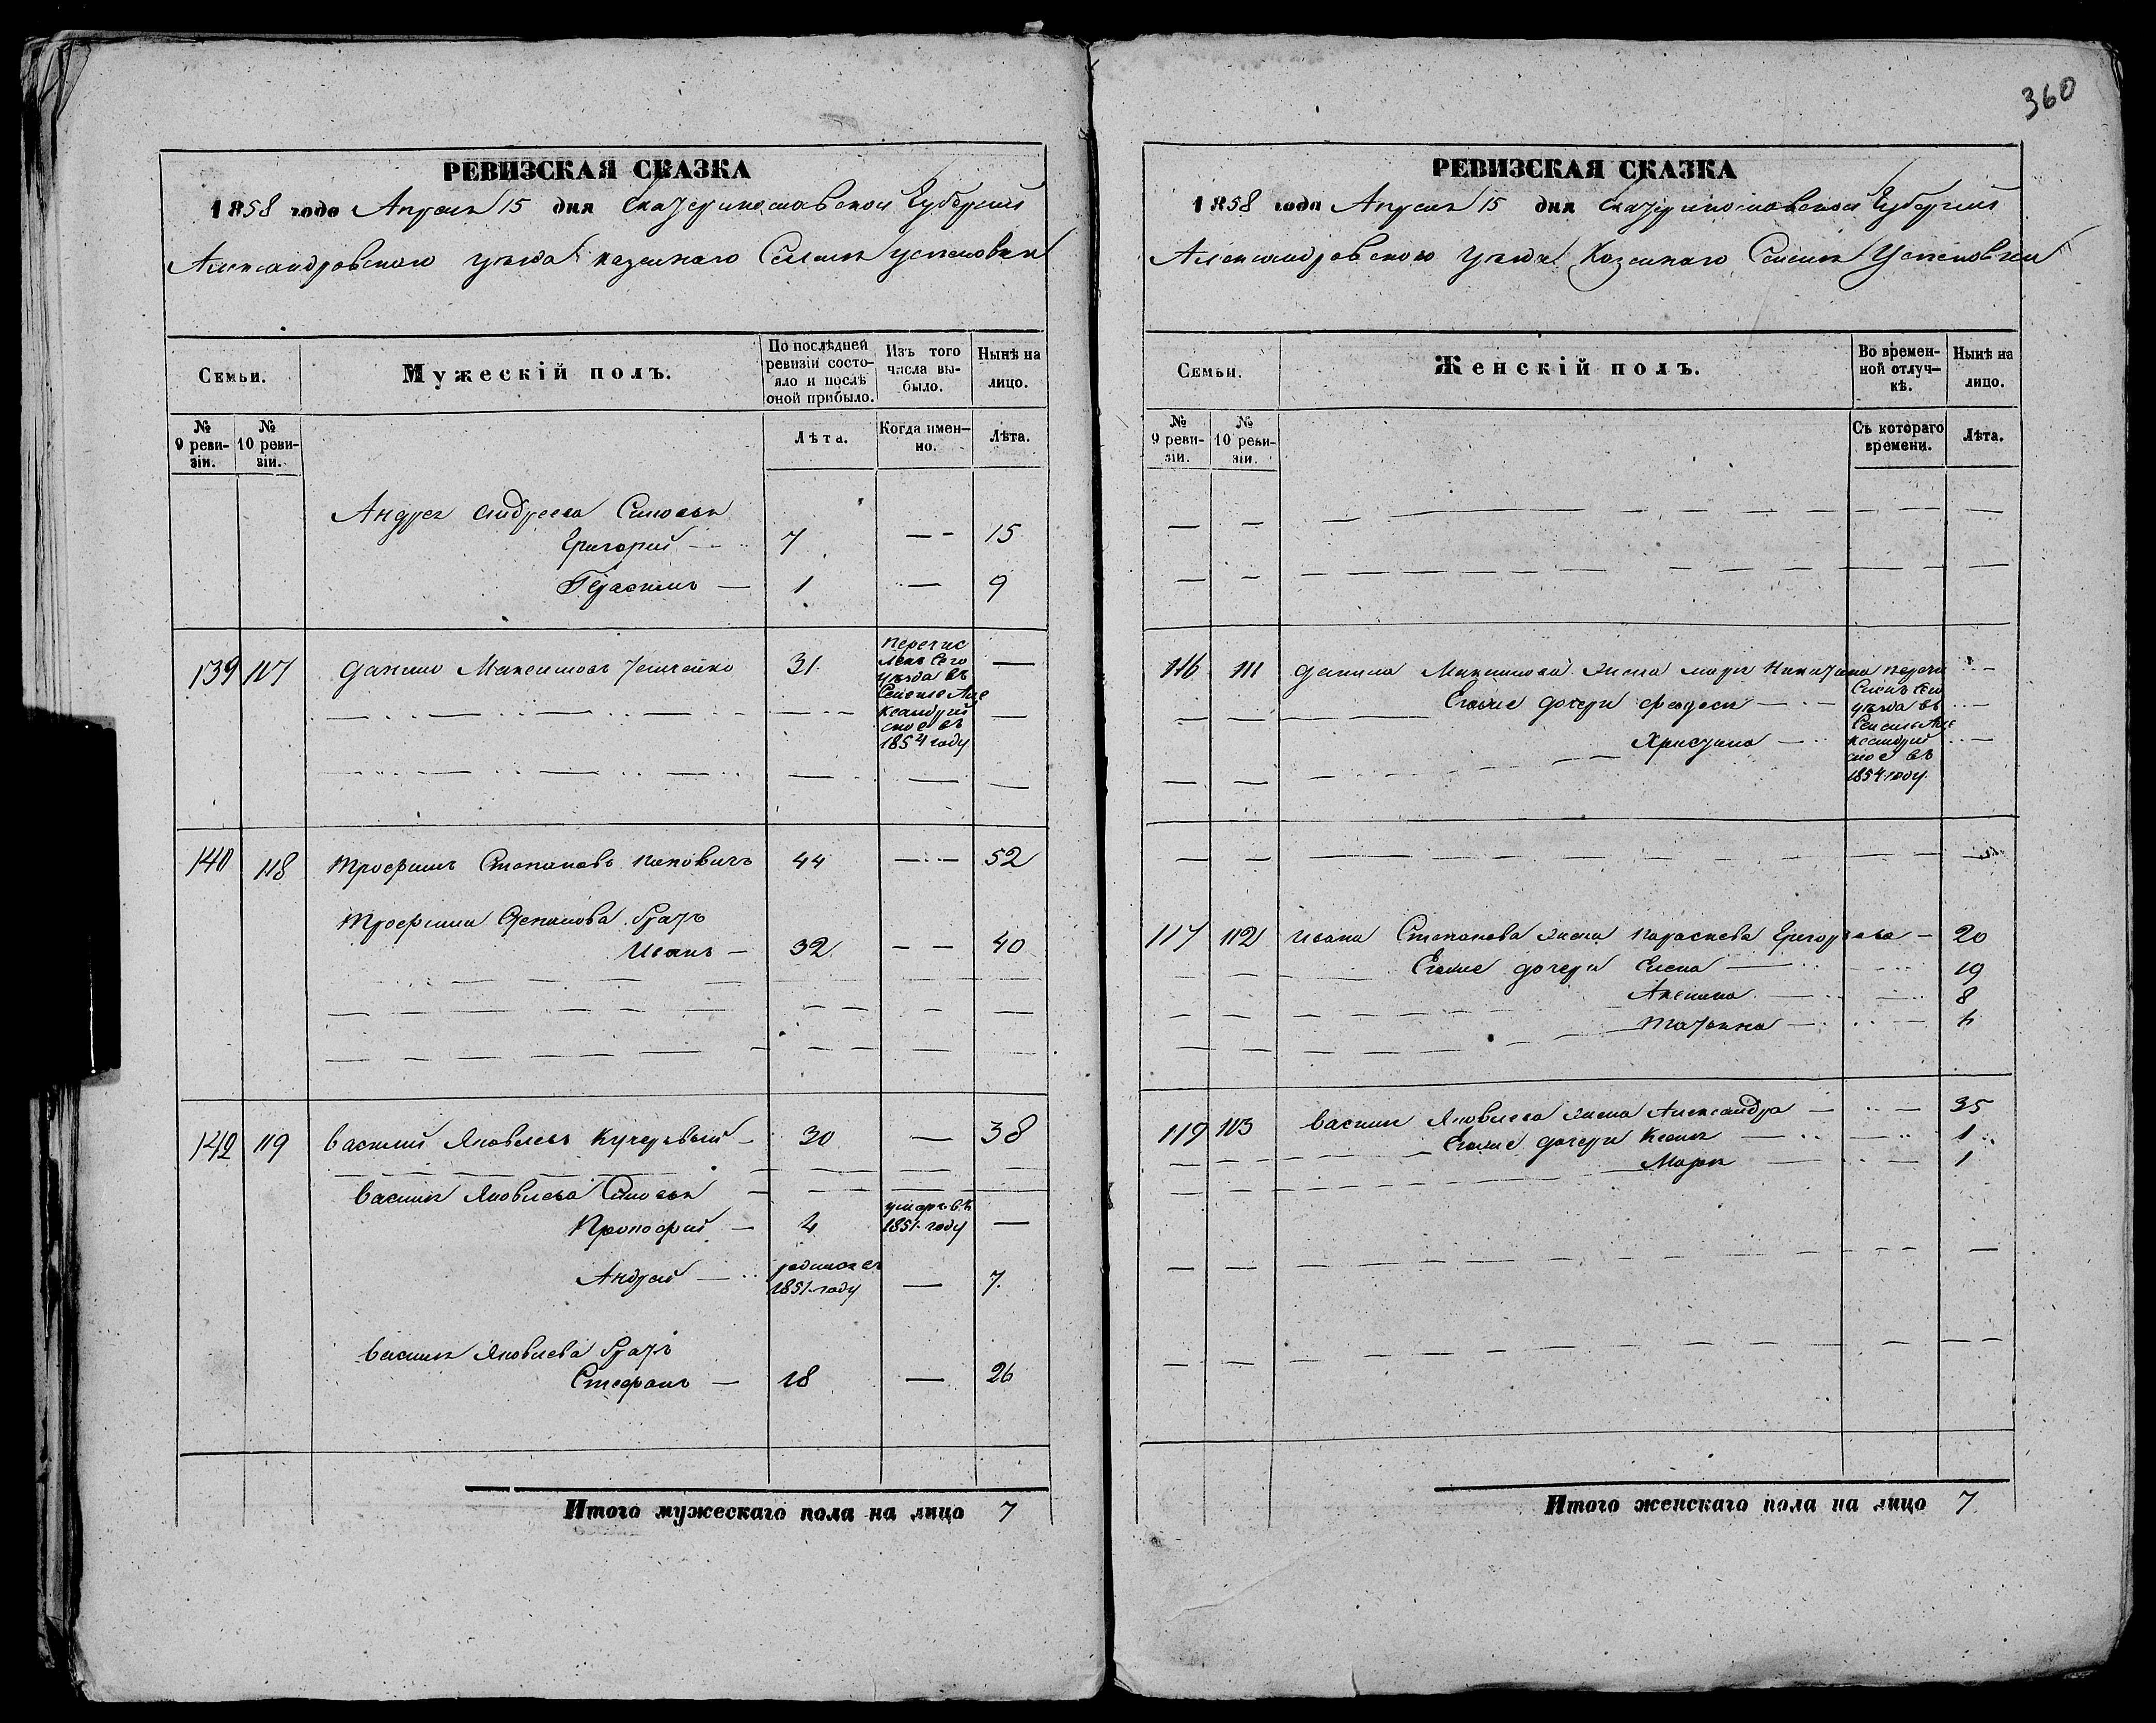 360
РЕВИЗСКАЯ СКАЗКА
1858 года Апреля 15 дня Екатеринославской Губернии
Александровского уезда казеннаго Селения Успеновки
Семьи.
Мужескій полъ.
По послѣдней ревизіи состояло и послѣ оной прибыло.
Изъ того числа выбыло.
Нынѣ на лицо.
№ 9 ревизіи.
№ 10 ревизіи.
Лѣта.
Когда именно.
Лѣта.
Андрея Андреева Сыновья
Григорий — 7 — 15
Герасимъ — 1 — 9
139 117 Данило Максимовъ 31. —
перечис
ленъ сего
уезда въ
Селение Але
ксандрий
ское въ
1854 году
140 118 Трофимъ Степановъ Попович 44 — 52
Трофима Степанова Братъ
Иванъ — 32 — 40
142 119 Василий Яковлевъ Кучерявый — 30 — 38
Василия Яковлева Сыновья
Прокофий — 4 умеръ въ 1851 году —
Андрей — родился въ 1851 году — 7.
Василия Яковлева Братъ
Стефанъ — 18 — 26
Итого мужескаго пола на лицо 7
РЕВИЗСКАЯ СКАЗКА
1858 года Апреля 15 дня Екатеринославской Губернии
Александровского уезда Казеннаго Селения Успеновки
Семьи.
Женскій полъ.
Во временной отлучкѣ.
Нынѣ на лицо.
№ 9 ревизіи.
№ 10 ревизіи.
Съ котораго времени.
Лѣта.
116 111 Данила Максимова жена Марья Никитина
Егоже дочери Феодосия
Христина
перечи
слена сего
уезда въ
Селение Але
ксандрий
ское въ
1854 году.
117 112 Ивана Степанова жена Параскева Григорьева — 20
Егоже дочери Елена — 19
Аксинья — 8
Татьяна — 6
119 113 Василия Яковлева жена Александра — 35
Егоже дочери Ксения — 1
Марья — 1
Итого женскаго пола на лицо 7